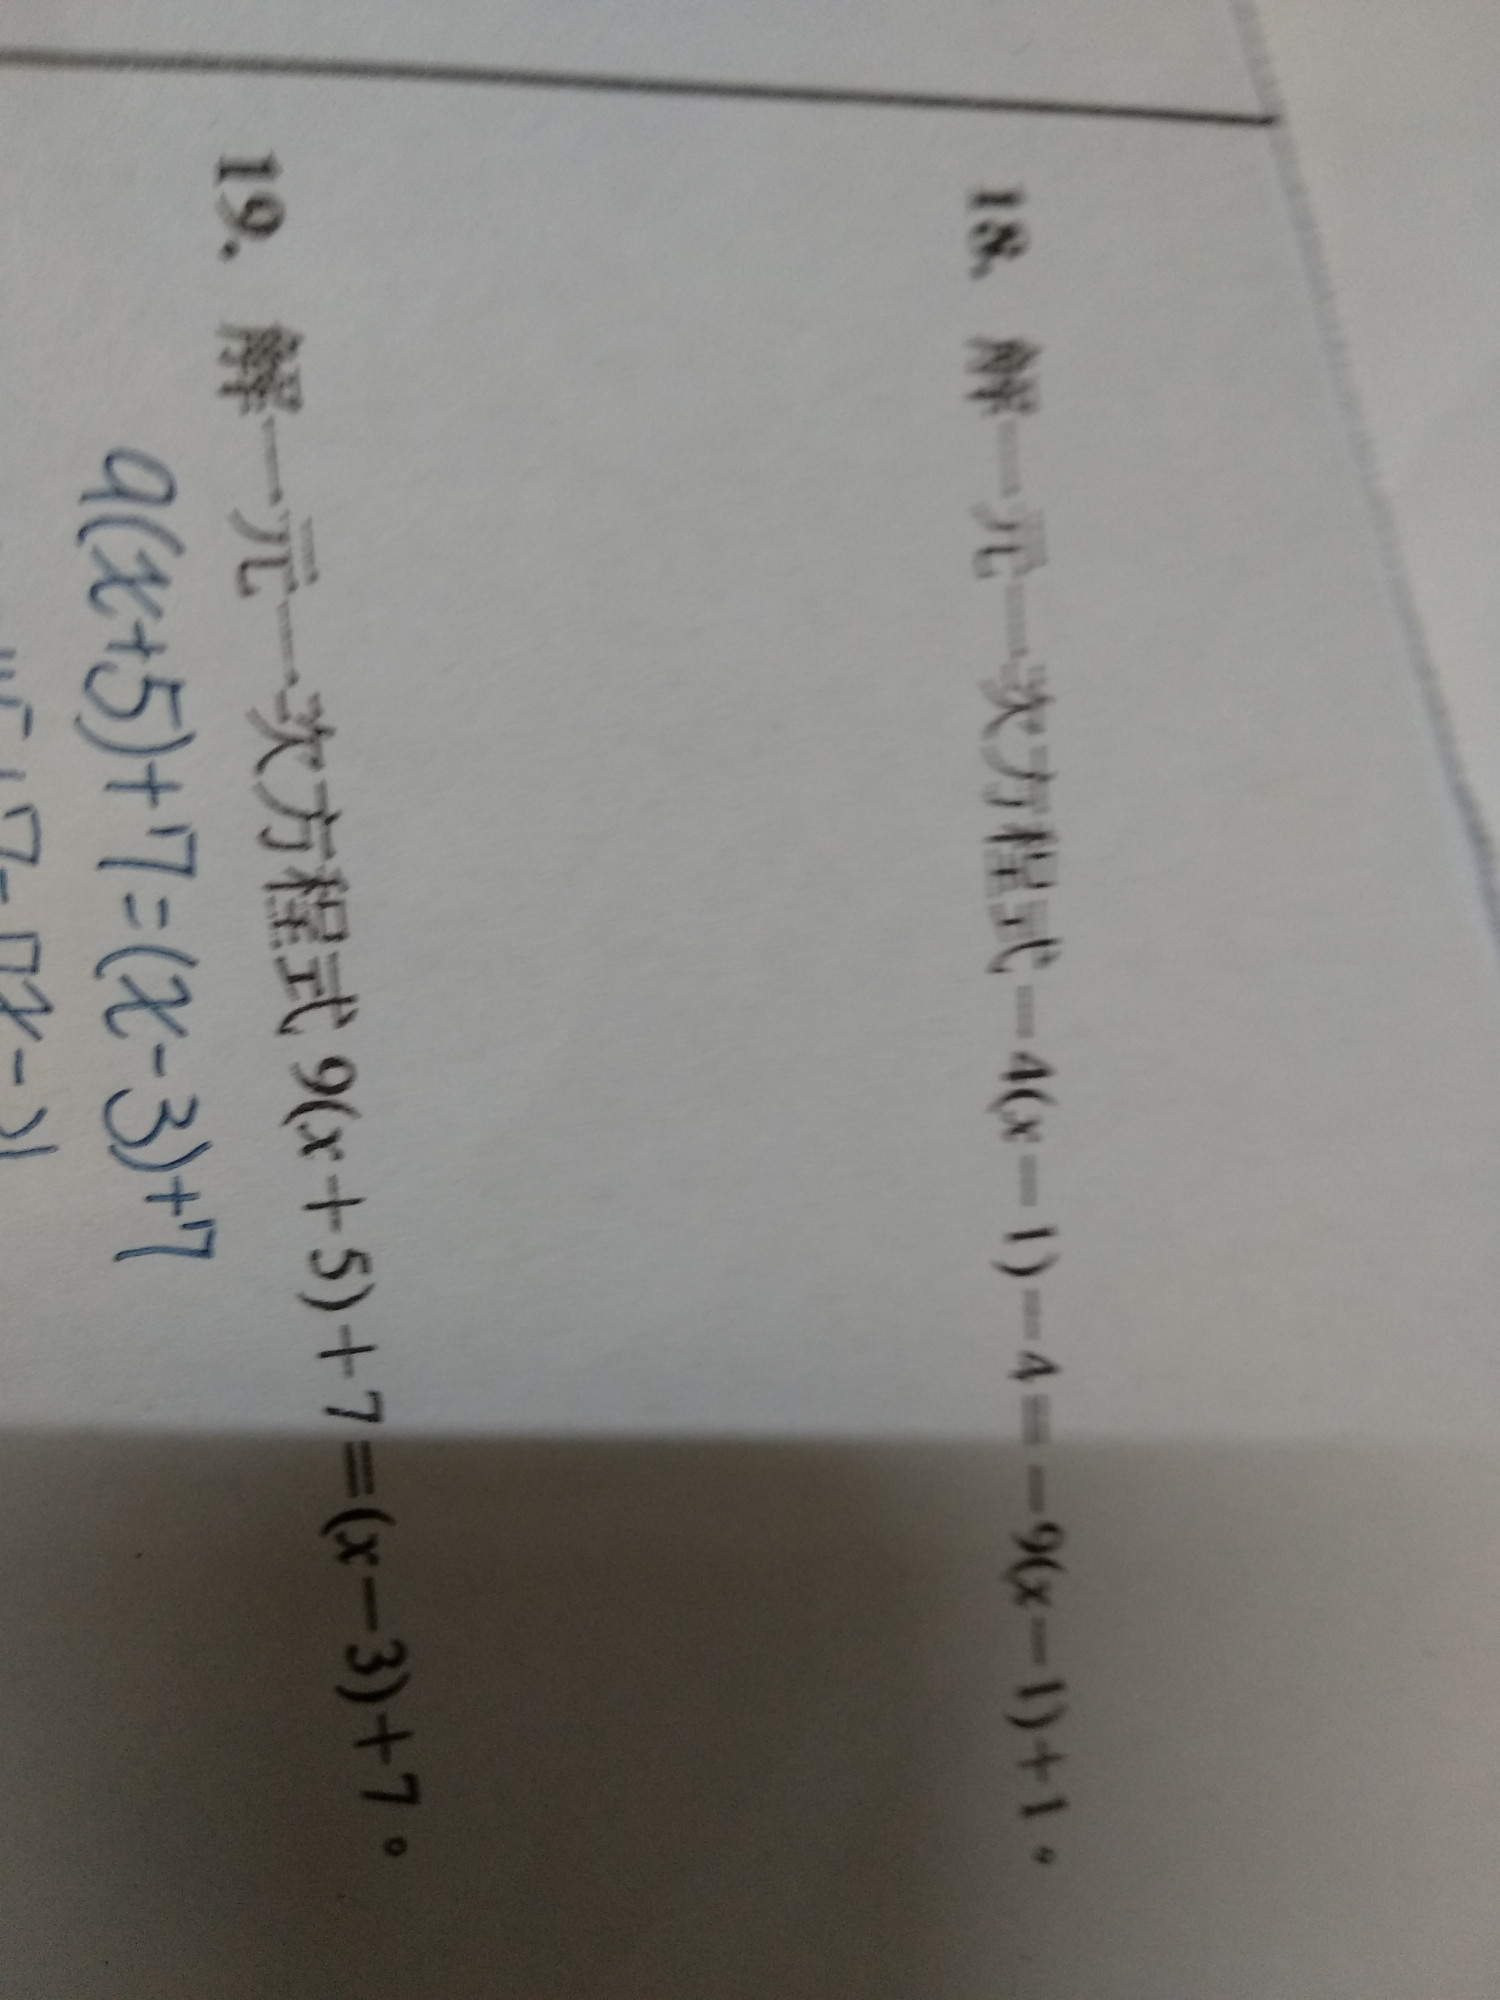 18. 解一元一次方程式−4(x−1)−4=−9(x−1)+1。
19. 解一元一次方程式 9(x+5)+7=(x−3)+7。
9(x+5)+7=(x-3)+7